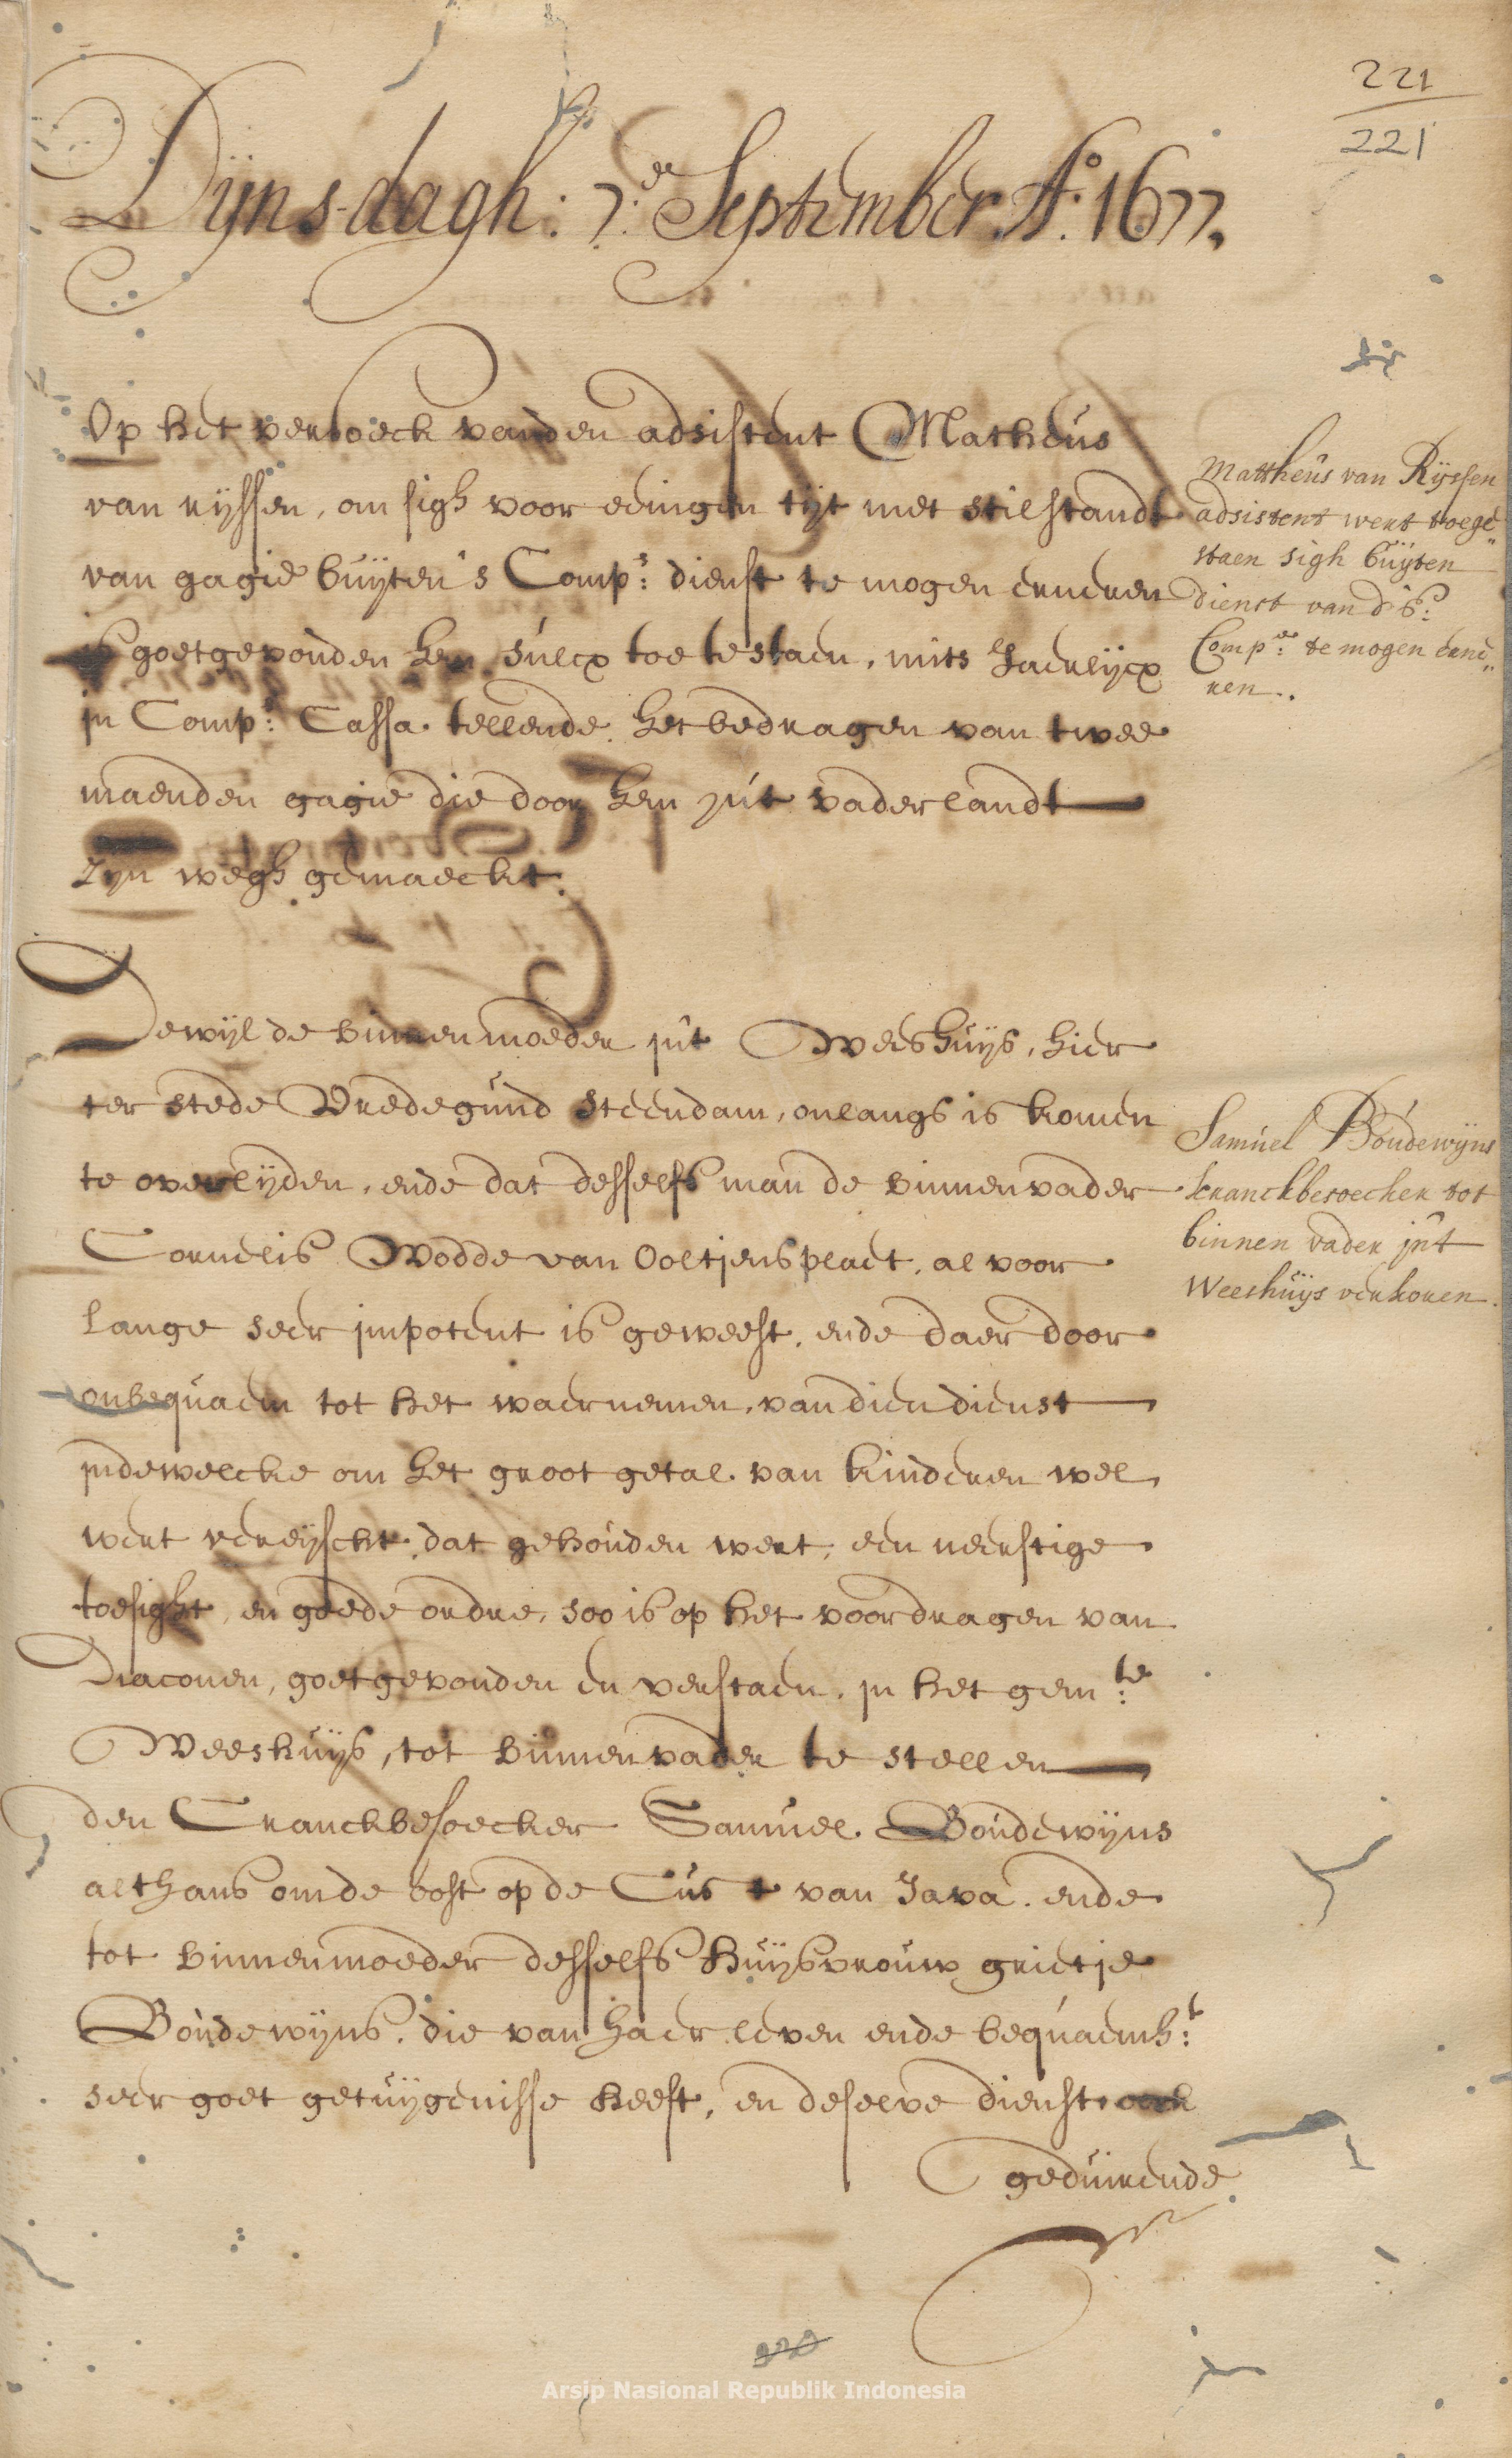 221
221
Dijnsdagh: 7:de September Ao: 1677.
Op het versoeck vanden adsistent Matheus
van rijssen, om sigh voor eenigen tijt met stilstandt
van gagie buijten 's Comps: dienst te mogen erneren
is goetgevonden hem sulcx toe te staen, mits Jaerlijcx
in Comps: Cassa tellende het bedragen van twee
maenden gagie die door hem jnt vaderlandt
zijn wegh gemaeckt.
Mattheus van Rijssen
adsistent wert toege„
staen sigh buijten
dienst van d' E:
Compe: te mogen erne„
ren.
Dewijl de binnenmoeder jnt Weeshuijs, hier
ter stede Vredegund Steendam, onlangs is komen
te overlijden, ende dat desselfs man de binnenvader
Cornelis Wodde van Ooltjensplaet, al voor
lange seer jmpotent is geweest, ende daer door
onbequaem tot het waernemen, van dien dienst
jndewelcke om het groot getal van kinderen wel
wert vereijscht, dat gehouden wert, een neerstige
toesight, en goede ordre, soo is op het voordragen van
Diaconen, goetgevonden en verstaen, jn het gem:te
Weeshuijs, tot binnenvader te stellen
den Cranckbesoecker Samuel Boudewijns
althans om de oost op de Cust van Java, ende
tot binnenmoeder desselfs huijsvrouw grietje
Boudewijns, die van haer leven ende bequaemh:t
seer goet getuijgenisse heeft, en deselve dienst ook
geduirende
Samuel Boudewijns
kranckbesoecker tot
binnen vader jnt
Weeshuijs verkoren.
220
Arsip Nasional Republik Indonesia